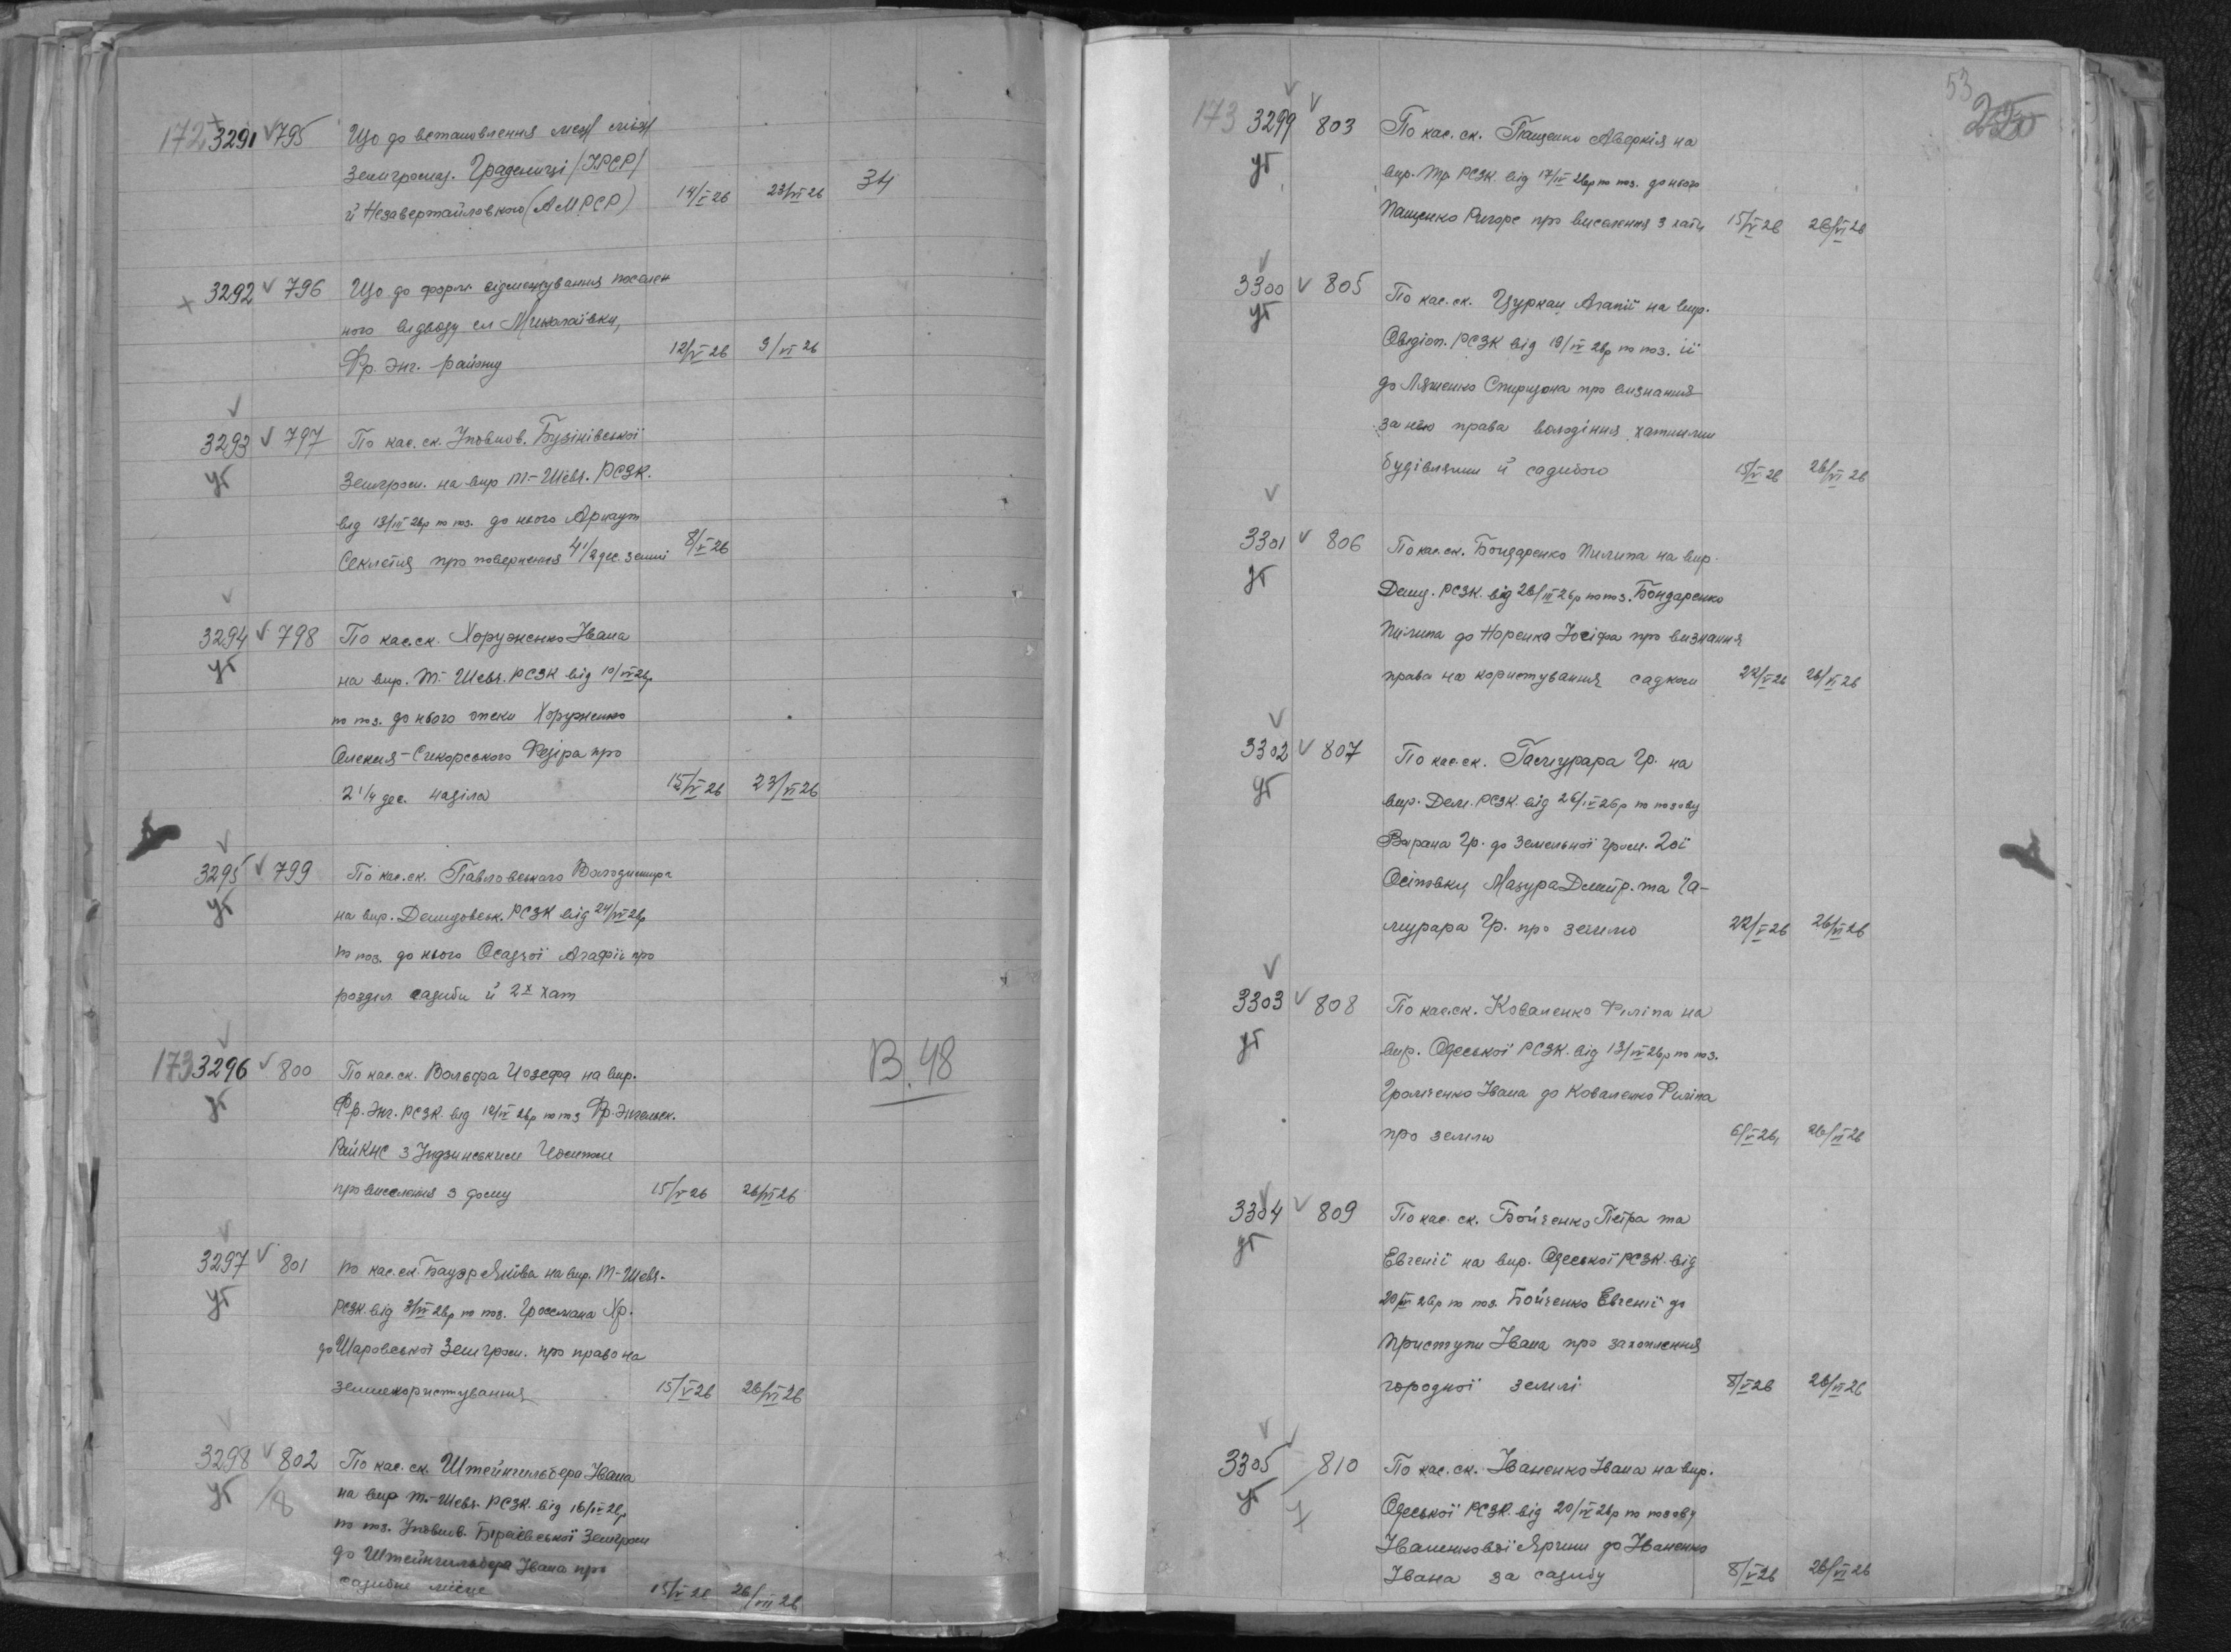 172 3291 795 Що до встановлення меж між
Земгромад. Градениці /УРСР/
й Незавертайловкою (АМРСР) 14/V 26 23/VI 26 34
3292 796 Що до форм. відмежування поселен
ного відводу сл Миколаївки,
Фр. Энг. району 12/V 26 9/VI 26
3293 797 По кас. ск. Уповнов. Бузінівської
уг Земгром. на вир Т.-Шевч. РСЗК.
від 13/III 26р по поз. до нього Арнаут
Секлетія про повернення 4 1/2 дес. землі 8/V 26
3294 798 По кас.ск. Хоруженко Івана
уг на вир. Т.-Шевч. РСЗК від 10/IV 26р.
по поз. до нього опеки Хоруженко
Олексія-Сикорського Федіра про
2 1/4 дес. наділа 15/V 26 23/VI 26
3295 799 По кас.ск. Павловського Володимира
уг на вир. Демидовськ. РСЗК від 24/IV 26р
по поз. до нього Осадчої Агафії про
розділ садиби й 2х хат
173 3296 800 По кас.ск. Вольфа Йозефа на вир. В. 48
уг Фр. Энг. РСЗК від 12/IV 26р по поз Фр-Энгельск.
РайКНС з Йосипом
про виселення з дому 15/V 26 26/VI 26
3297 801 по кас.ск. Бауэр Якова на вир. Т-Шевч.
уг РСЗК від 3/IV 26р по поз. Гроссмана Хр.
до Шаровської Земгром. про право на
землекористування 15/V 26 26/VI 26
3298 802 По кас. ск. Штейнгильбера Івана
уг 8 на вир Т.-Шевч. РСЗК. від 16/IV 26р
по поз. Уповнов. Земгром
до Штейнгильбера Івана про
садибне місце 15/V 26 26/VII 26
53
173 3299 803 По кас. ск. Пащенко Аверкія на
уг вир. Тр. РСЗК. від 17/IV 26р по поз. до нього
Пащенко Ригоре про виселення з хати 15/V 26 26/VI 26
3300 805 По кас.ск. Цуркан Агапії на вир.
уг Овідіоп. РСЗК від 19/IV 26р по поз. її
до Ляшенко Спиридона про визнання
за нею права володіння хатними
будівлями й садибою 15/V 26 26/VI 26
3301 806 По кас.ск. Бондаренко Пилипа на вир.
уг Демид. РСЗК. від 26/III 26р по поз. Бондаренко
Пилипа до Норенка Йосіфа про визнання
права на користування садком 22/V 26 26/VI 26
3302 807 По кас.ск. Гамурара Гр. на
уг вир. Дем. РСЗК. від 26/IV 26р по позову
Варана Гр. до Земельної Гром. 2ої
Осіповки, Мазура Дмитр. та Га-
мурара Гр. про землю 22/V 26 26/VI 26
3303 808 По кас.ск. Коваленко Филіпа на
уг вир. Одеської РСЗК. від 13/IV 26р по поз.
Громченко Івана до Коваленко Филіпа
про землю 6/V 26, 26/VI 26
3304 809 По кас. ск. Бойченко Петра та
уг Евгенії на вир. Одеської РСЗК. від
20/IV 26р по поз. Бойченко Евгенії до
Приступи Івана про захоплення
городної землі 8/V 26 26/VI 26
3305 810 По кас. ск. Іваненко Івана на вир.
уг Одеської РСЗК. від 20/IV 26р по позову
Іваненкової Ярини до Іваненко
Івана за садибу 8/V 26 26/VI 26